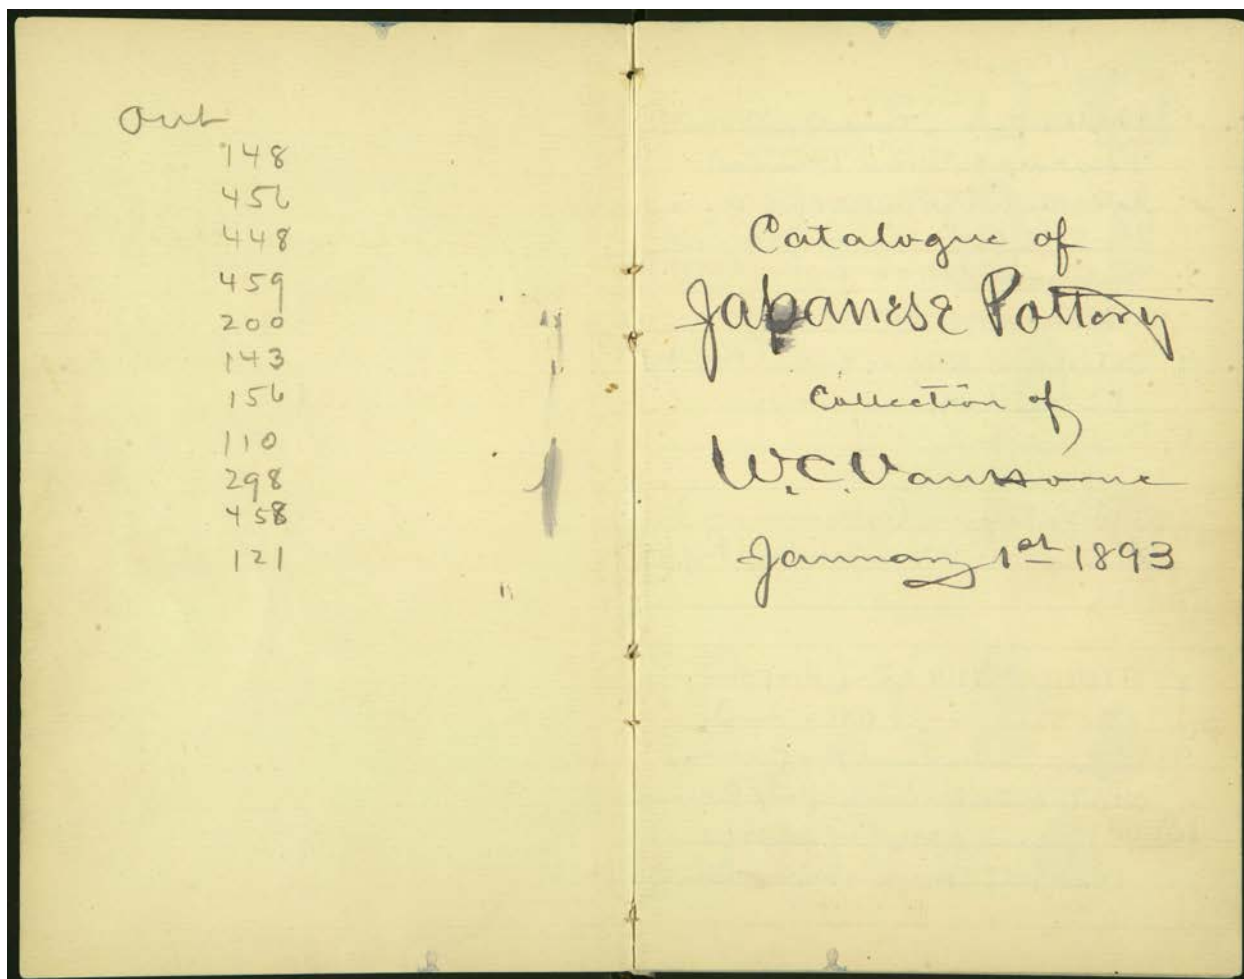 Out
148
456
448
459
200
143
156
110
298
458
121
Catalogue of
Japanese Pottery
Collection of
W.C. Van Horne
January 1st 1893